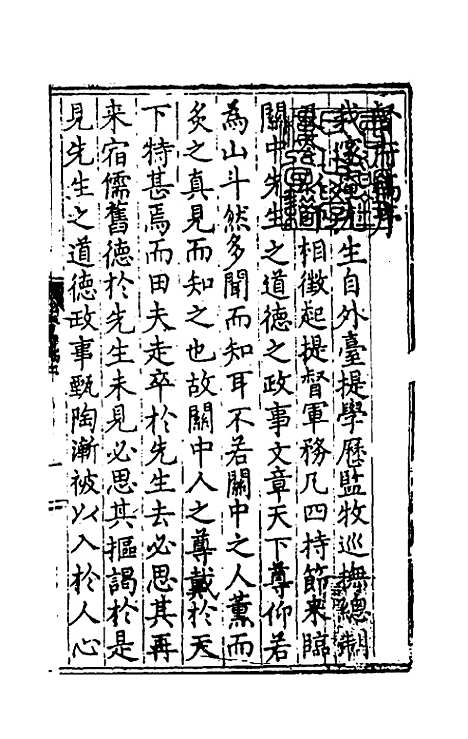 督府稿
我 生自外臺提學歷監牧巡撫總制
相徵起提督軍務凡四持節来臨
關中先生之道德之政事文章天下尊仰若
為山斗然多聞而知耳不若關中之人薰而
炙之真見而知之也故關中人之尊戴於天
下特甚焉而田夫走卒於先生去必思其再
来宿儒舊德於先生未見必思其摳謁於是
見先生之道德政事甄陶漸被以入於人心